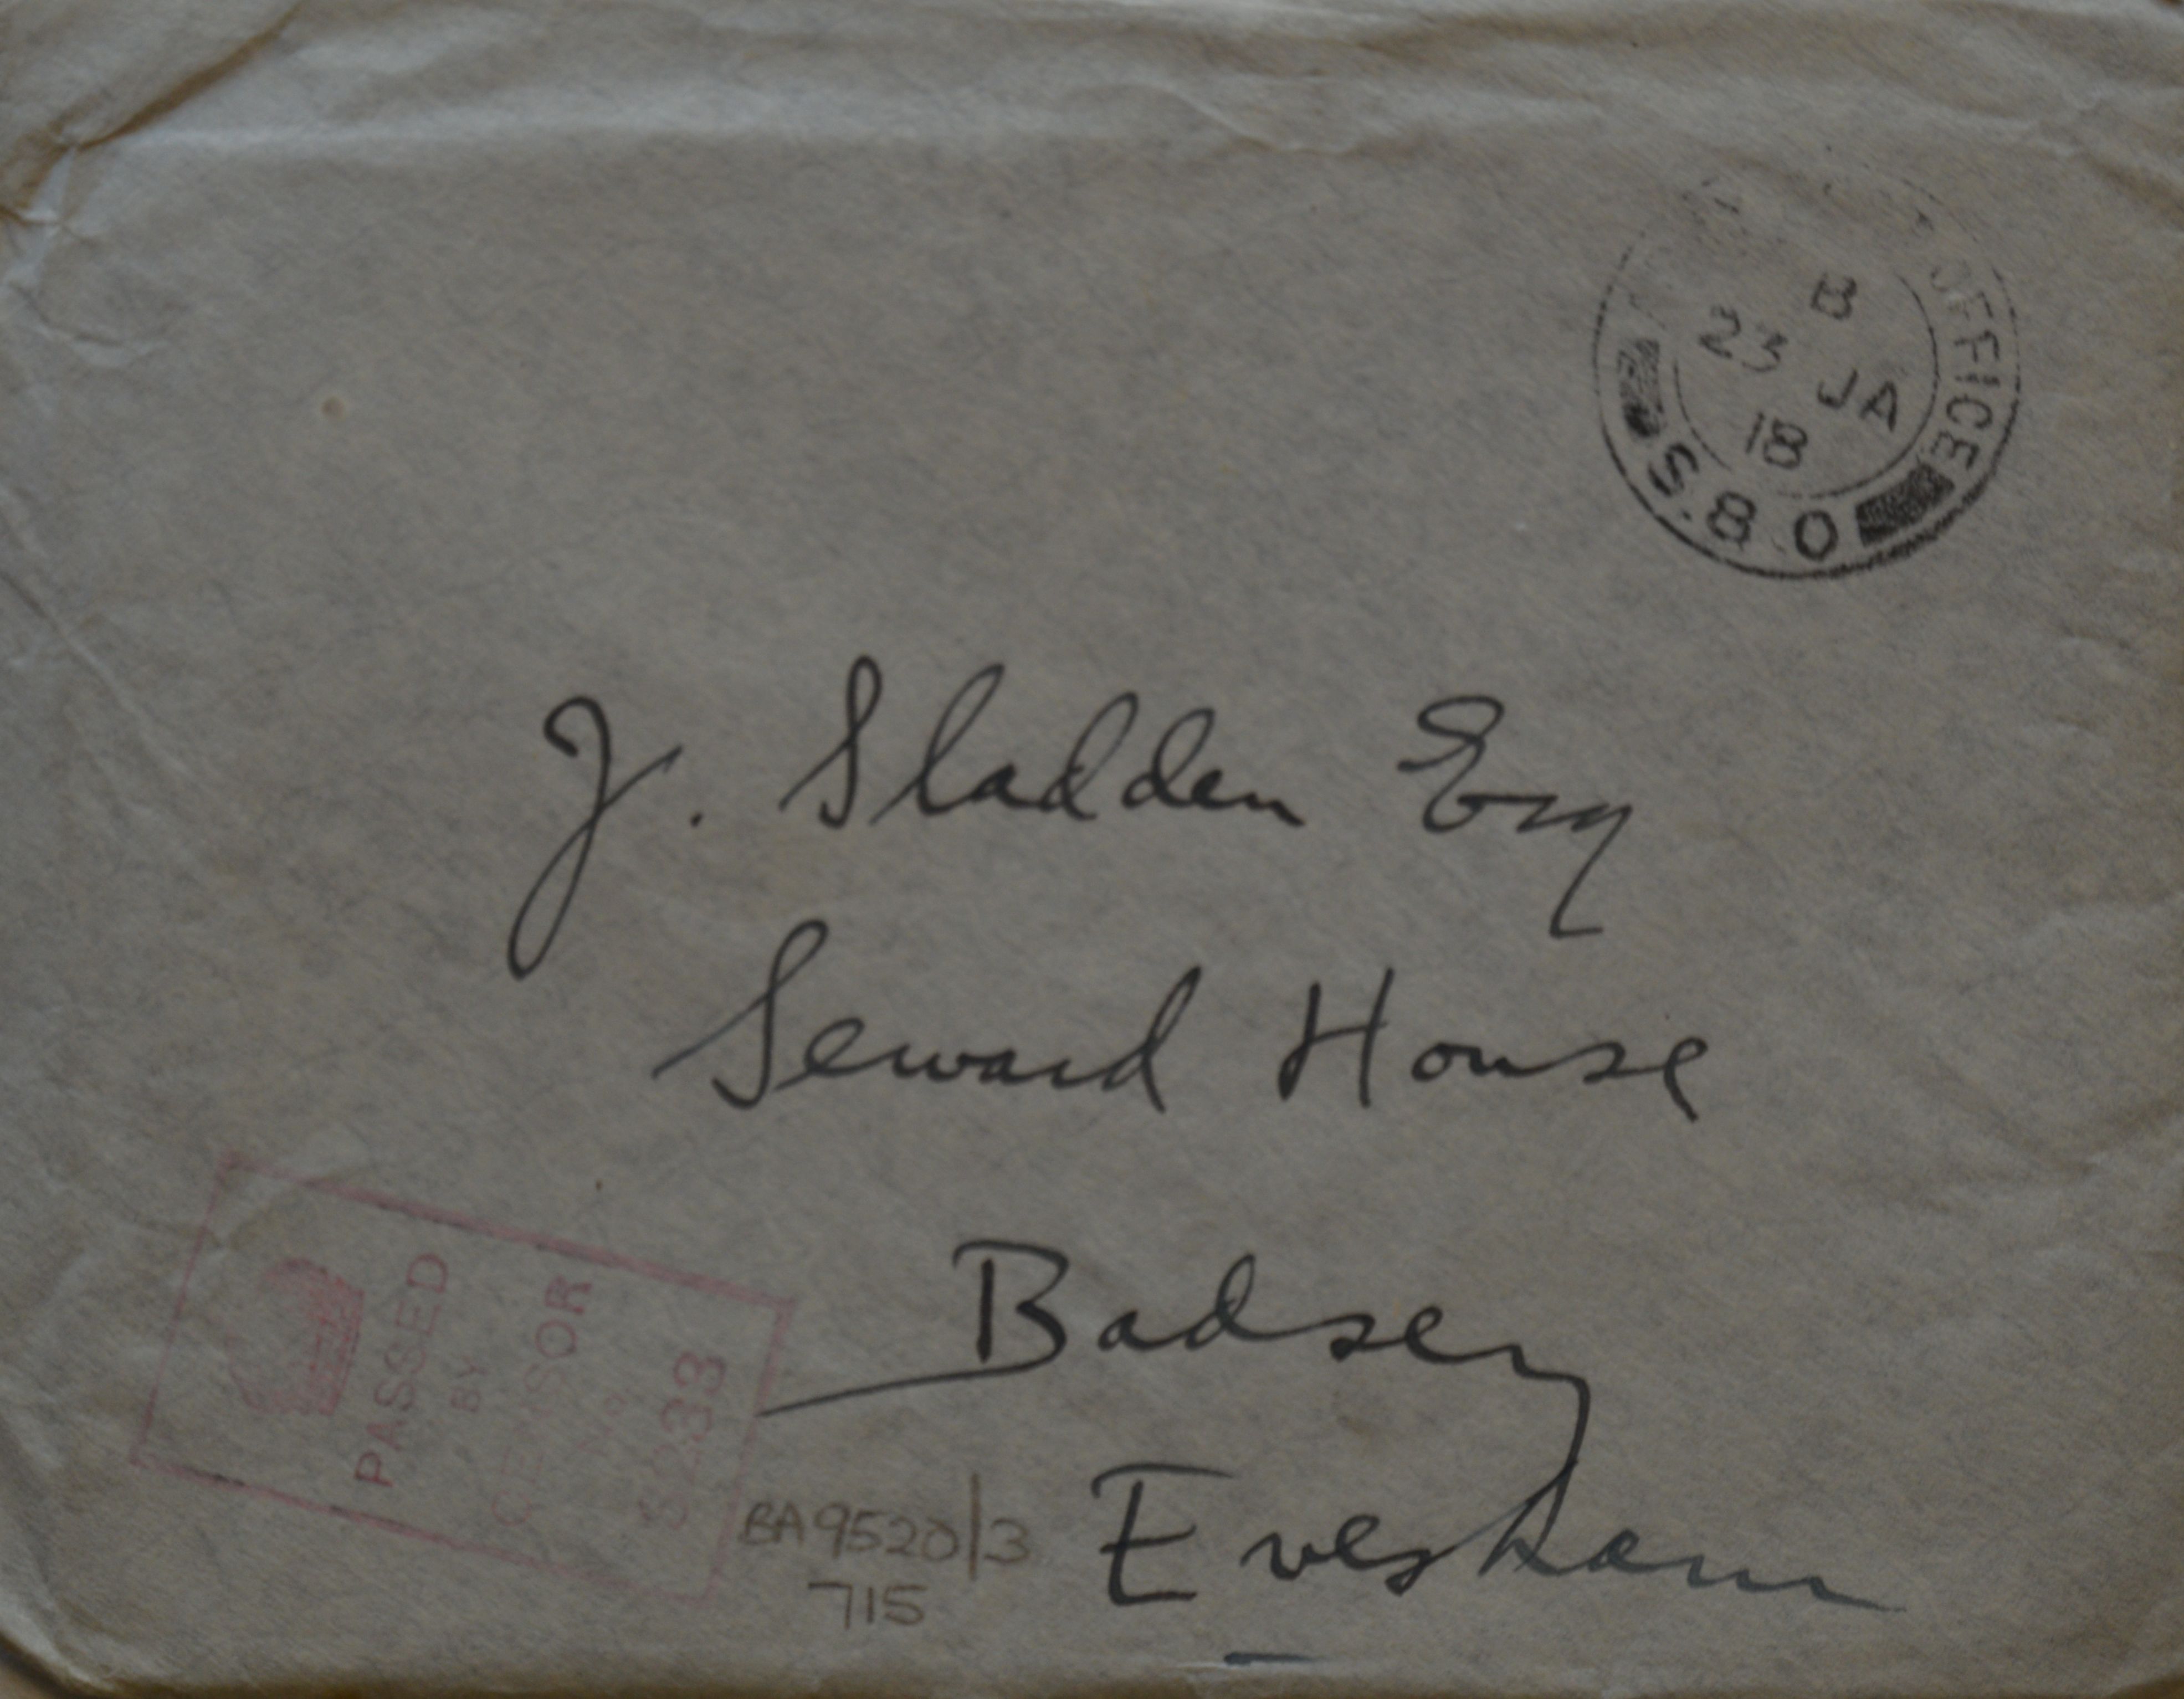 OFFICE
B
23 JA
18
S.80
J. Sladden Esq
Seward House
Badsey
Evesham
PASSED
BY
CENSOR
No
5233
BA9520/3
715